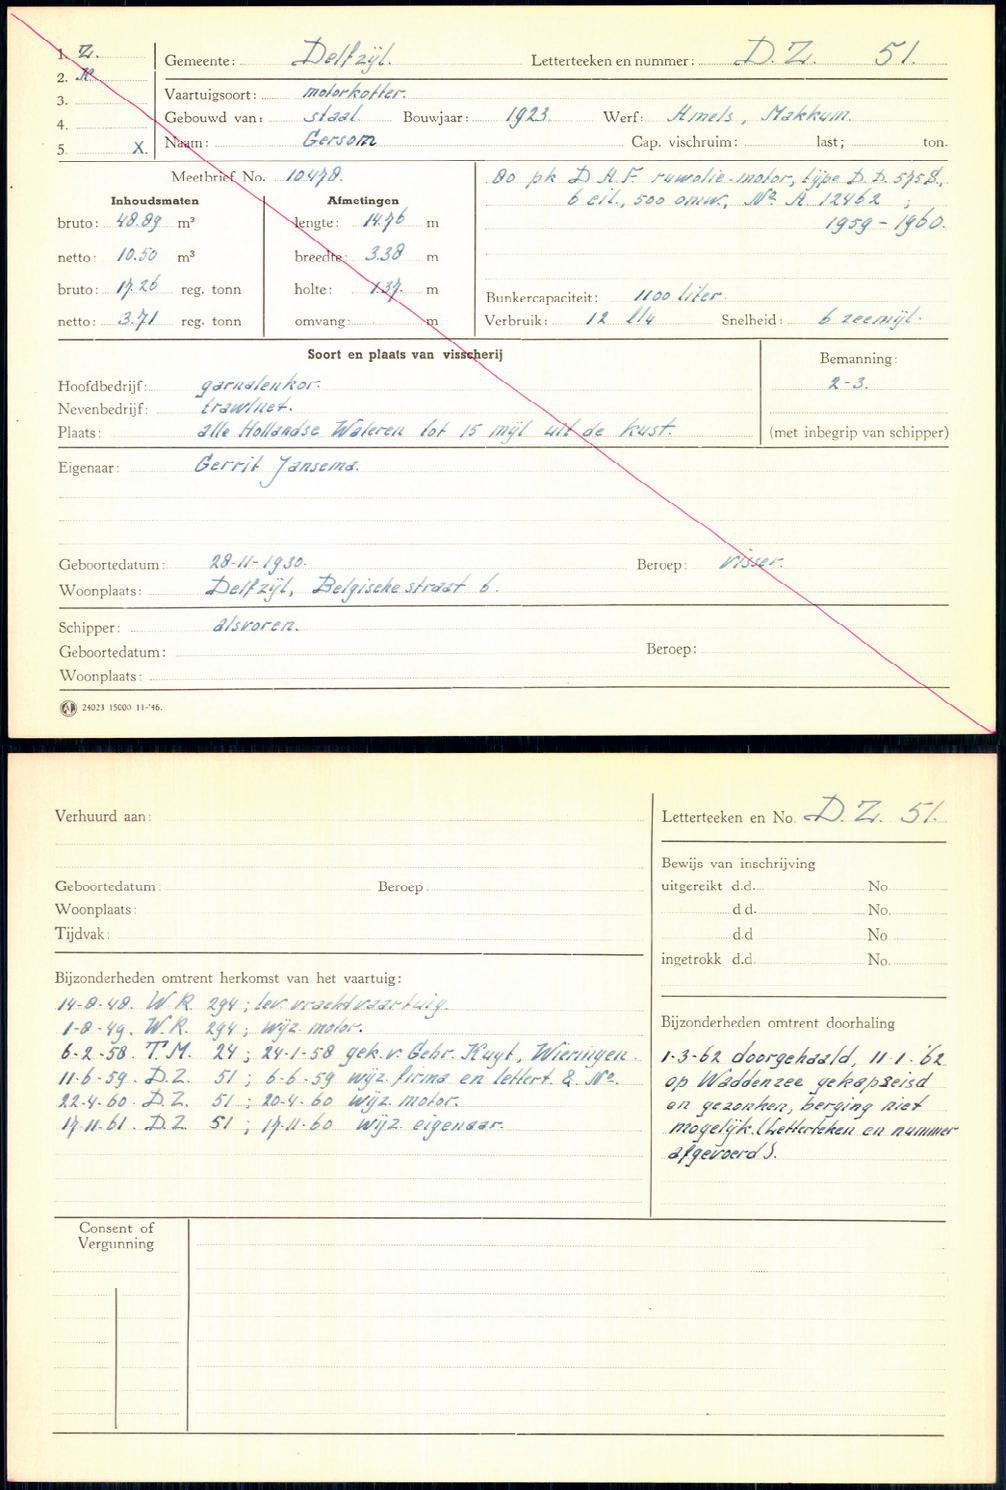 1. Z.
2. K.
3.
4.
5. X.
Gemeente: Delfzijl. Letterteeken en nummer: D.Z. 51.
Vaartuigsoort: motorkotter.
Gebouwd van: staal. Bouwjaar: 1923. Werf: Amels, Makkum.
Naam: Gersom Cap. vischruim: last; ton.
Meetbrief No. 10478.
Inhoudsmaten
bruto: 48.89 m³
netto: 10.50 m³
bruto: 17.26 reg. tonn
netto: 3.71 reg. tonn
Afmetingen
lengte: 14.76 m
breedte: 3.38 m
holte: 1.37. m
omvang: m
80 pk D.A.F. ruwolie-motor, type D.D. 575 S.,
6 cil., 500 omw., No A 12462 ;
1959 - 1960.
Bunkercapaciteit: 1100 liter.
Verbruik: 12 l/u Snelheid: 6 zeemijl.
Soort en plaats van visscherij
Hoofdbedrijf: garnalenkor.
Nevenbedrijf: trawlnet.
Plaats: alle Hollandse Wateren tot 15 mijl uit de kust.
Bemanning:
2-3.
(met inbegrip van schipper)
Eigenaar: Gerrit Jansema.
Geboortedatum: 28-11-1930. Beroep: visser.
Woonplaats: Delfzijl, Belgischestraat 6.
Schipper: alsvoren.
Geboortedatum: Beroep:
Woonplaats:
24023 15000 11-'46.
Verhuurd aan:
Geboortedatum: Beroep
Woonplaats:
Tijdvak:
Letterteeken en No. D.Z. 51.
Bewijs van inschrijving
uitgereikt d.d. No
d d. No.
d.d No
ingetrokk d.d. No.
Bijzonderheden omtrent herkomst van het vaartuig:
14-8-48. W.R. 294; lev. vrachtvaartuig.
1-8-49. W.R. 294; wijz. motor.
6-2-58. T.M. 24; 24-1-58 gek. v. Gebr. Kuyt, Wieringen.
11-6-59. D.Z. 51; 6-6-59 wijz. firma en lettert. & No.
22-4-60. D.Z. 51; 20-4-60 wijz. motor.
17-11-61. D.Z. 51; 17-11-60 wijz. eigenaar.
Bijzonderheden omtrent doorhaling
1-3-62 doorgehaald, 11-1-'62
op Waddenzee gekapseisd
en gezonken, berging niet
mogelijk. (Letterteken en nummer
afgevoerd).
Consent of
Vergunning